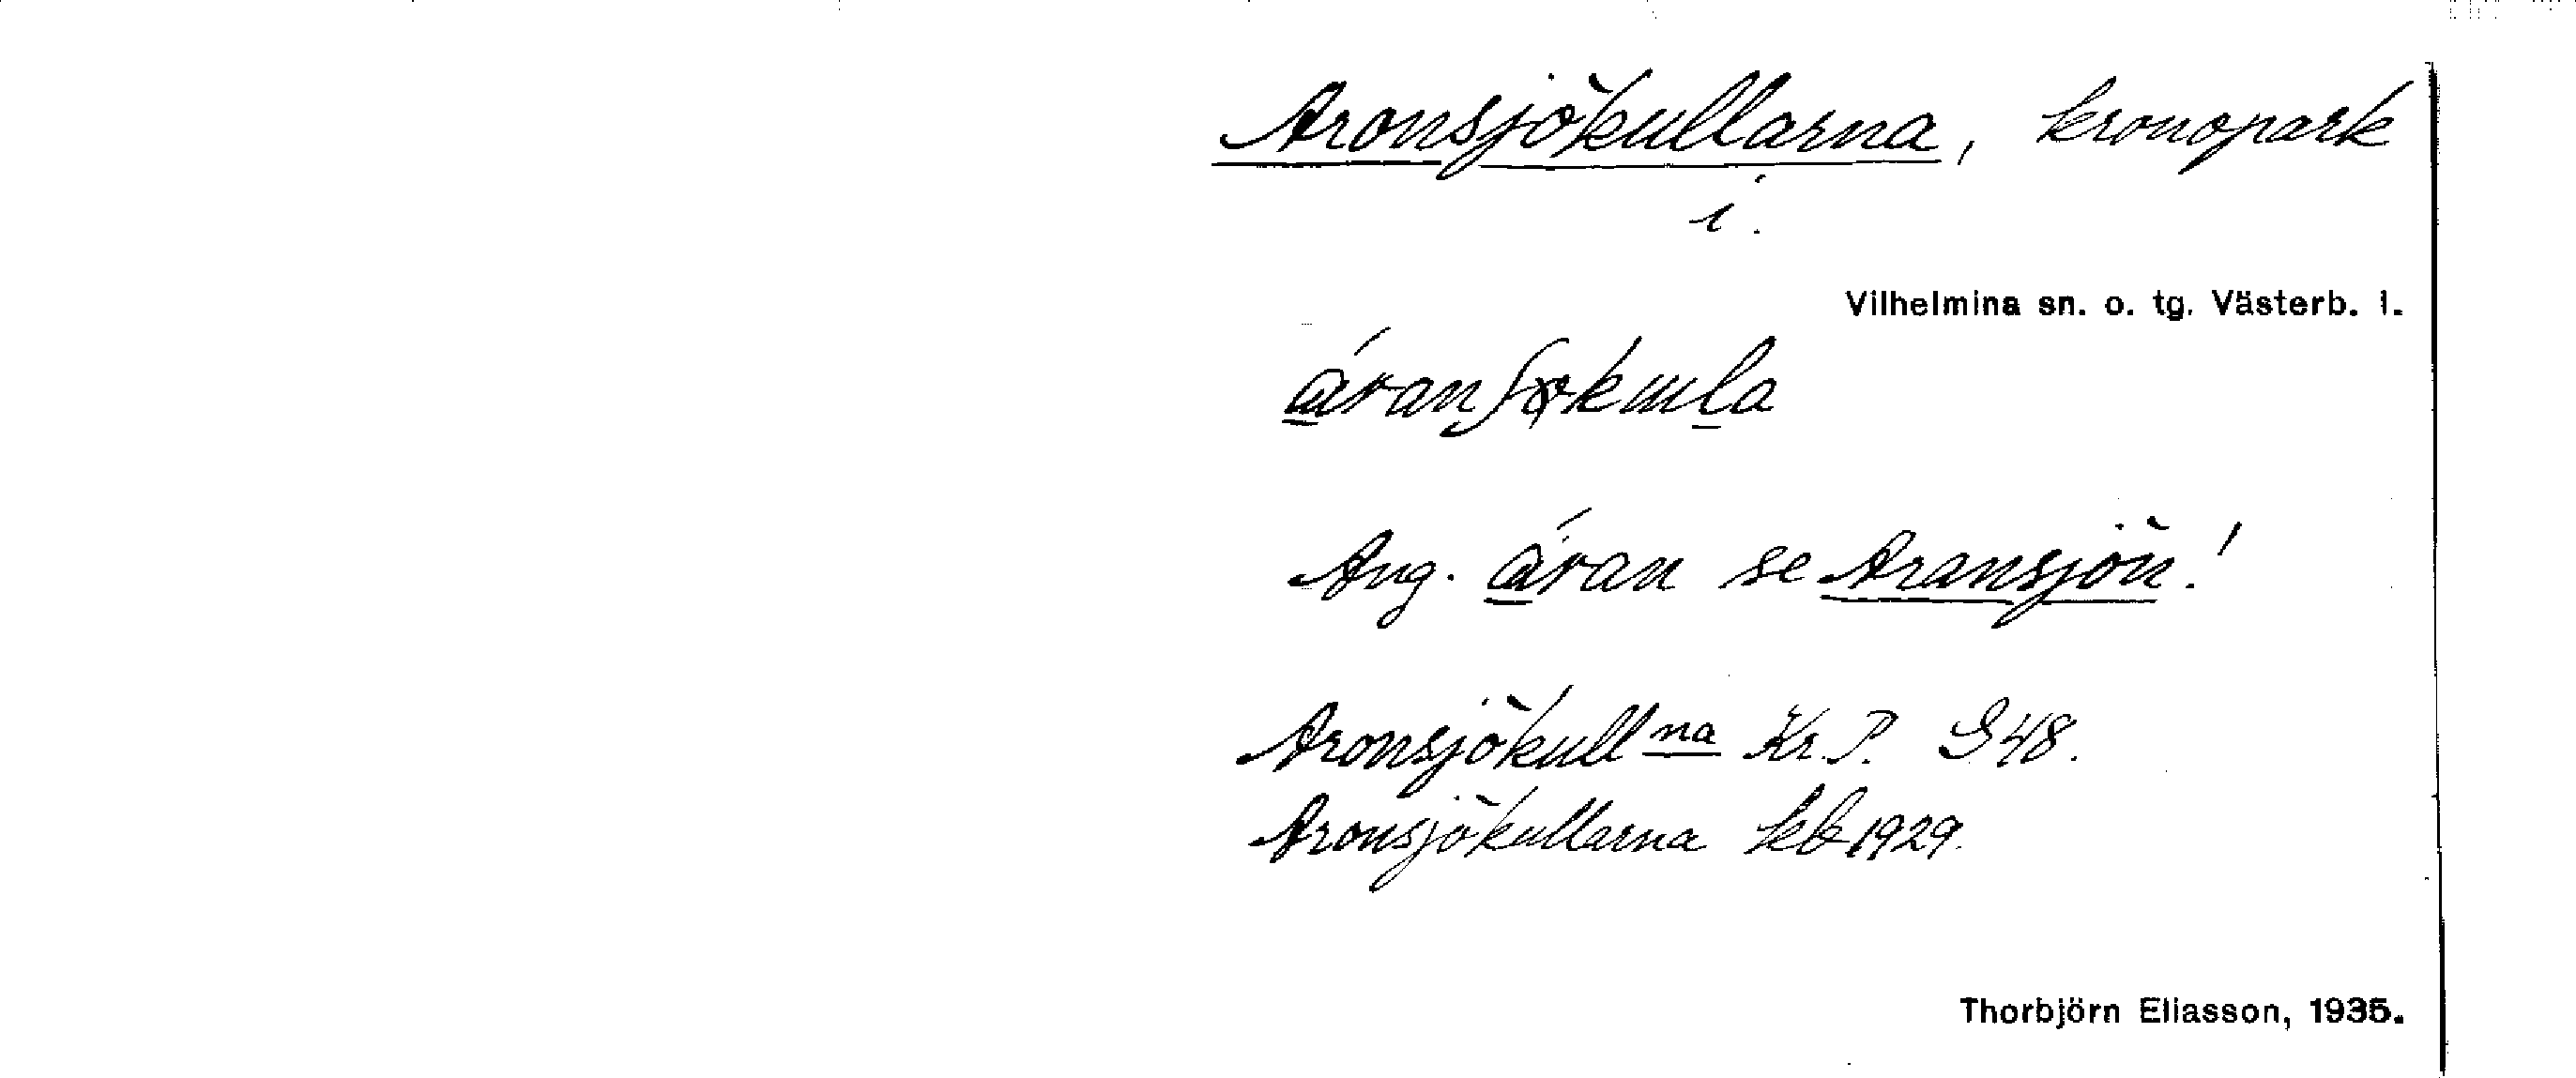 Aronsjökullarna, kronopark
i.
Vilhelmina sn. o. tg. Västerb. l.
Ang. áran se Aransjön!
Aronsjökullna Kr. P. S48.
Aronsjökullarna kb 1929.
Thorbjörn Eliasson, 1935.